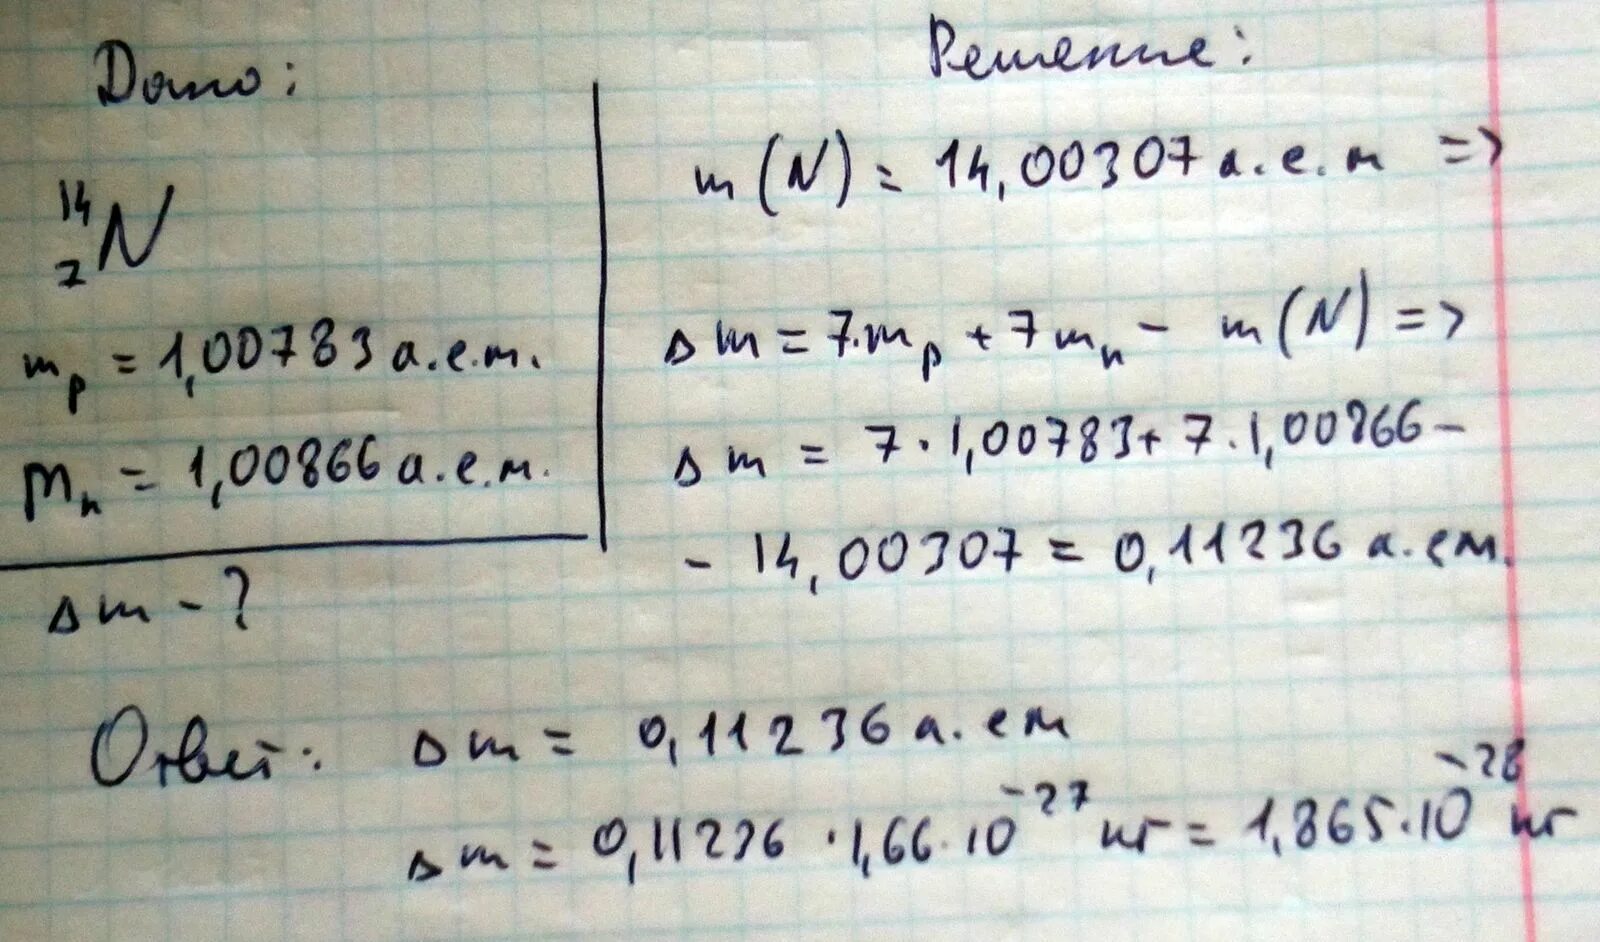 Дано:
¹⁴₇N
mₚ = 1,00783 а.е.м.
mₙ = 1,00866 а.е.м.
Δm - ?
Решение:
m(N) = 14,00307 а.е.м =>
Δm = 7·mₚ + 7mₙ - m(N) =>
Δm = 7·1,00783 + 7·1,00866 -
- 14,00307 = 0,11236 а.ем.
Ответ: Δm = 0,11236 а.ем
Δm = 0,11236 · 1,66·10⁻²⁷ кг = 1,865·10⁻²⁸ кг